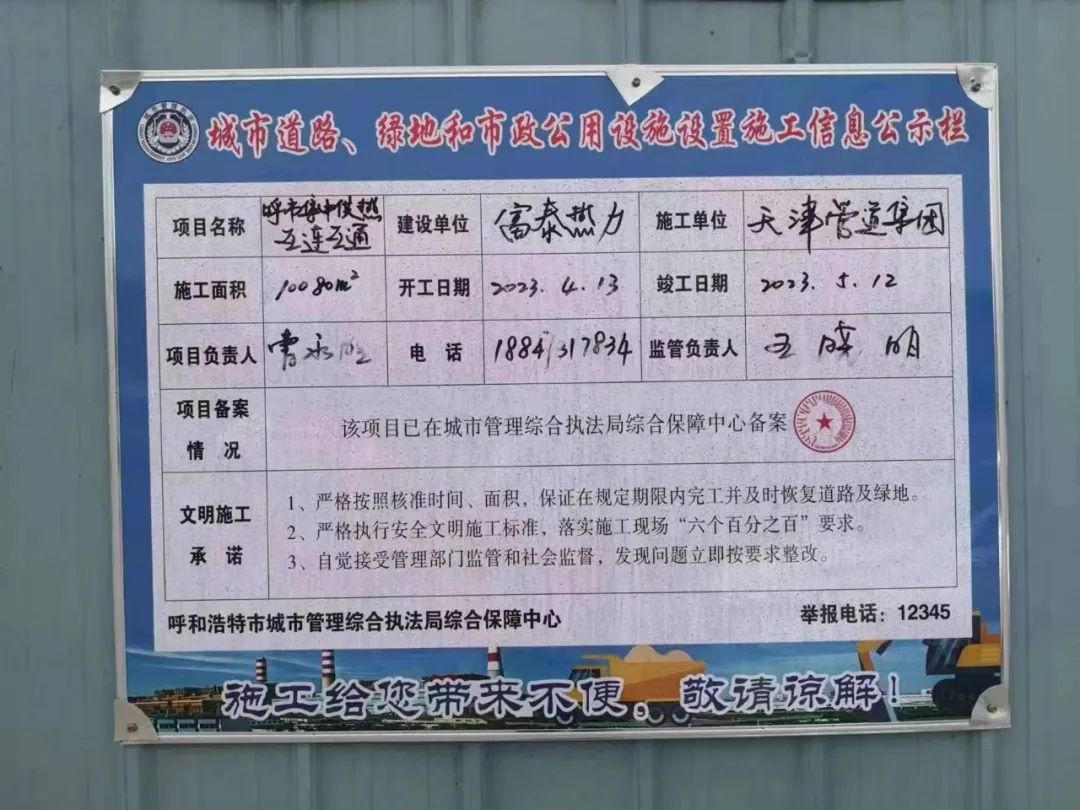 城市道路、绿地和市政公用设施设置施工信息公示栏
项目名称 呼市集中供热互连互通 建设单位 富泰热力 施工单位 天津管道集团
施工面积 10080m² 开工日期 2023.4.13 竣工日期 2023.5.12
项目负责人 曹永 电话 18841317834 监管负责人 王晓明
项目备案情况 该项目已在城市管理综合执法局综合保障中心备案
文明施工承诺
1、严格按照核准时间、面积，保证在规定期限内完工并及时恢复道路及绿地。
2、严格执行安全文明施工标准，落实施工现场“六个百分之百”要求。
3、自觉接受管理部门监管和社会监督，发现问题立即按要求整改。
呼和浩特市城市管理综合执法局综合保障中心 举报电话：12345
施工给您带来不便。敬请谅解！